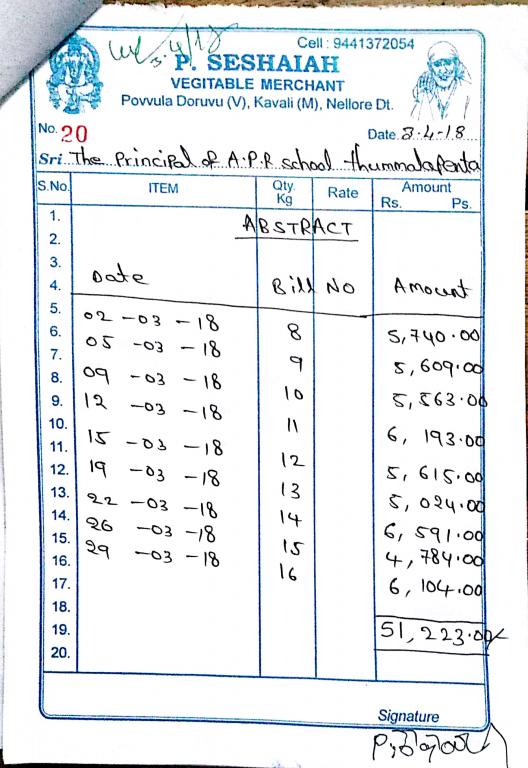 3/4/18
Cell : 9441372054
P. SESHAIAH
VEGITABLE MERCHANT
Povvula Doruvu (V), Kavali (M), Nellore Dt.
No. 20 Date 3.4-18
Sri The Principal of A.P.R school thummalapenta
S.No. ITEM Qty. Kg Rate Amount Rs. Ps.
1.
ABSTRACT
2.
3.
4. Date Bill No Amount
5. 02-03-18 8 5,740.00
6. 05-03-18 9 5,609.00
7. 09-03-18 10 5,563.00
8. 12-03-18 11 6,193.00
9. 15-03-18 12 5,615.00
10. 19-03-18 13 5,024.00
11. 22-03-18 14 6,591.00
12. 26-03-18 15 4,784.00
13. 29-03-18 16 6,104.00
14.
15.
16.
17.
18.
19. 51,223.00/
20.
Signature